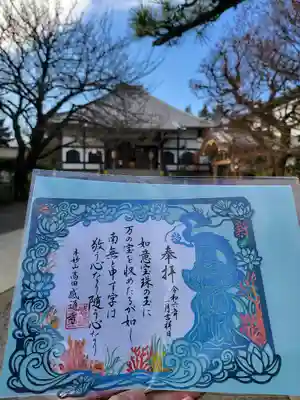 奉拝
令和六年
月吉祥日
如意宝珠の玉に
万の宝を収めたるが如し
南無と申す字は
敬う心なり随う心なり
高田 感通寺